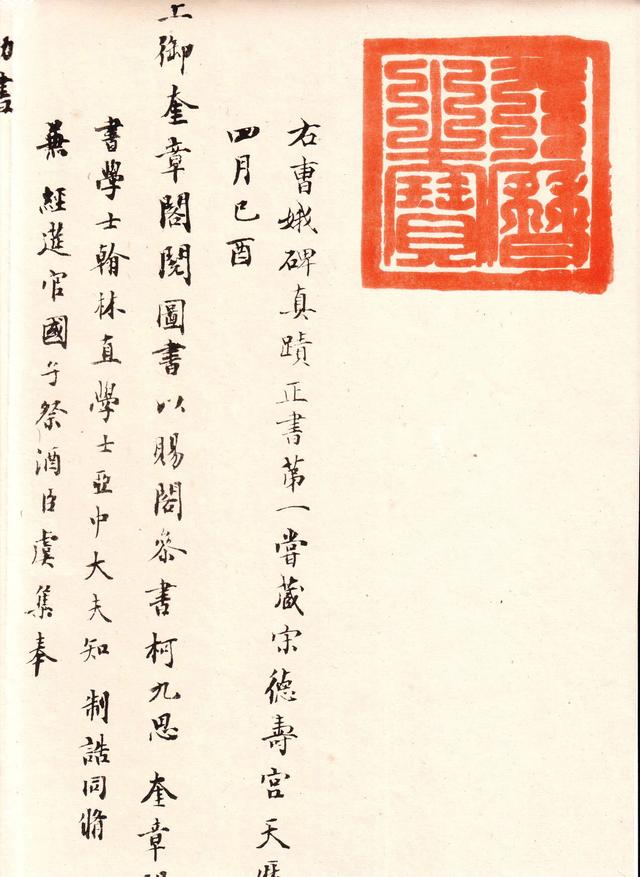 天曆之寶
右曹娥碑真蹟正書第一嘗藏宋德壽宮天曆
四月己酉
上御奎章閣閱圖書以賜閣參書柯九思 奎章閣
書學士翰林直學士亞中大夫知 制誥同脩
兼經筵官國子祭酒臣虞集奉
勑書